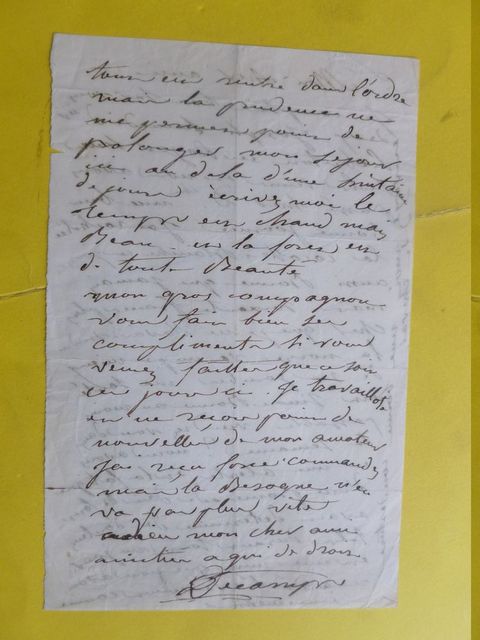 tout est rentré dans l'ordre
mais la prudence ne
me permet point de
prolonger mon sejour
ici au dela d'une
de jours écrivez moi le
temps est chaud mais
Beau et la foret est
de toute Beauté
mon gros compagnon
vous fait bien ses
compliments si vous
venez que ce soit
ces jours ci. Je
et ne recois point de
nouvelles de mon amateur
j'ai reçu force commandes
mais la Besogne n'en
va pas plus vite
adieu mon cher ami
amitiés a qui de droit
Decamps